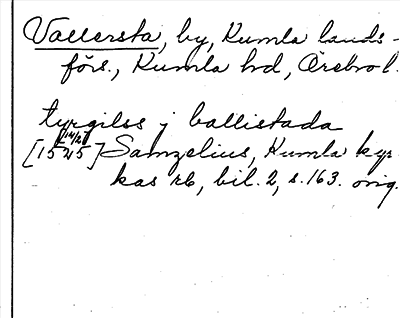 Vallersta, by, Kumla lands-
förs., Kumla hd, Örebro l.
tyrgilss j ballistada
[1525] Samzelius, Kumla kyr-
kas rb, bil. 2, s. 163. orig.